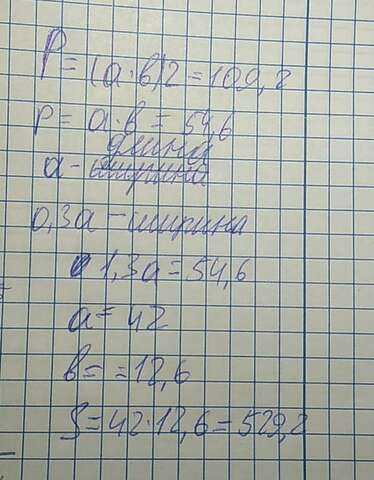 P = (a · b) 2 = 109,2
p = a · b = 54,6
длина
a - ширина
0,3a - ширина
1,3a = 54,6
a = 42
b = = 12,6
S = 42 · 12,6 = 529,2